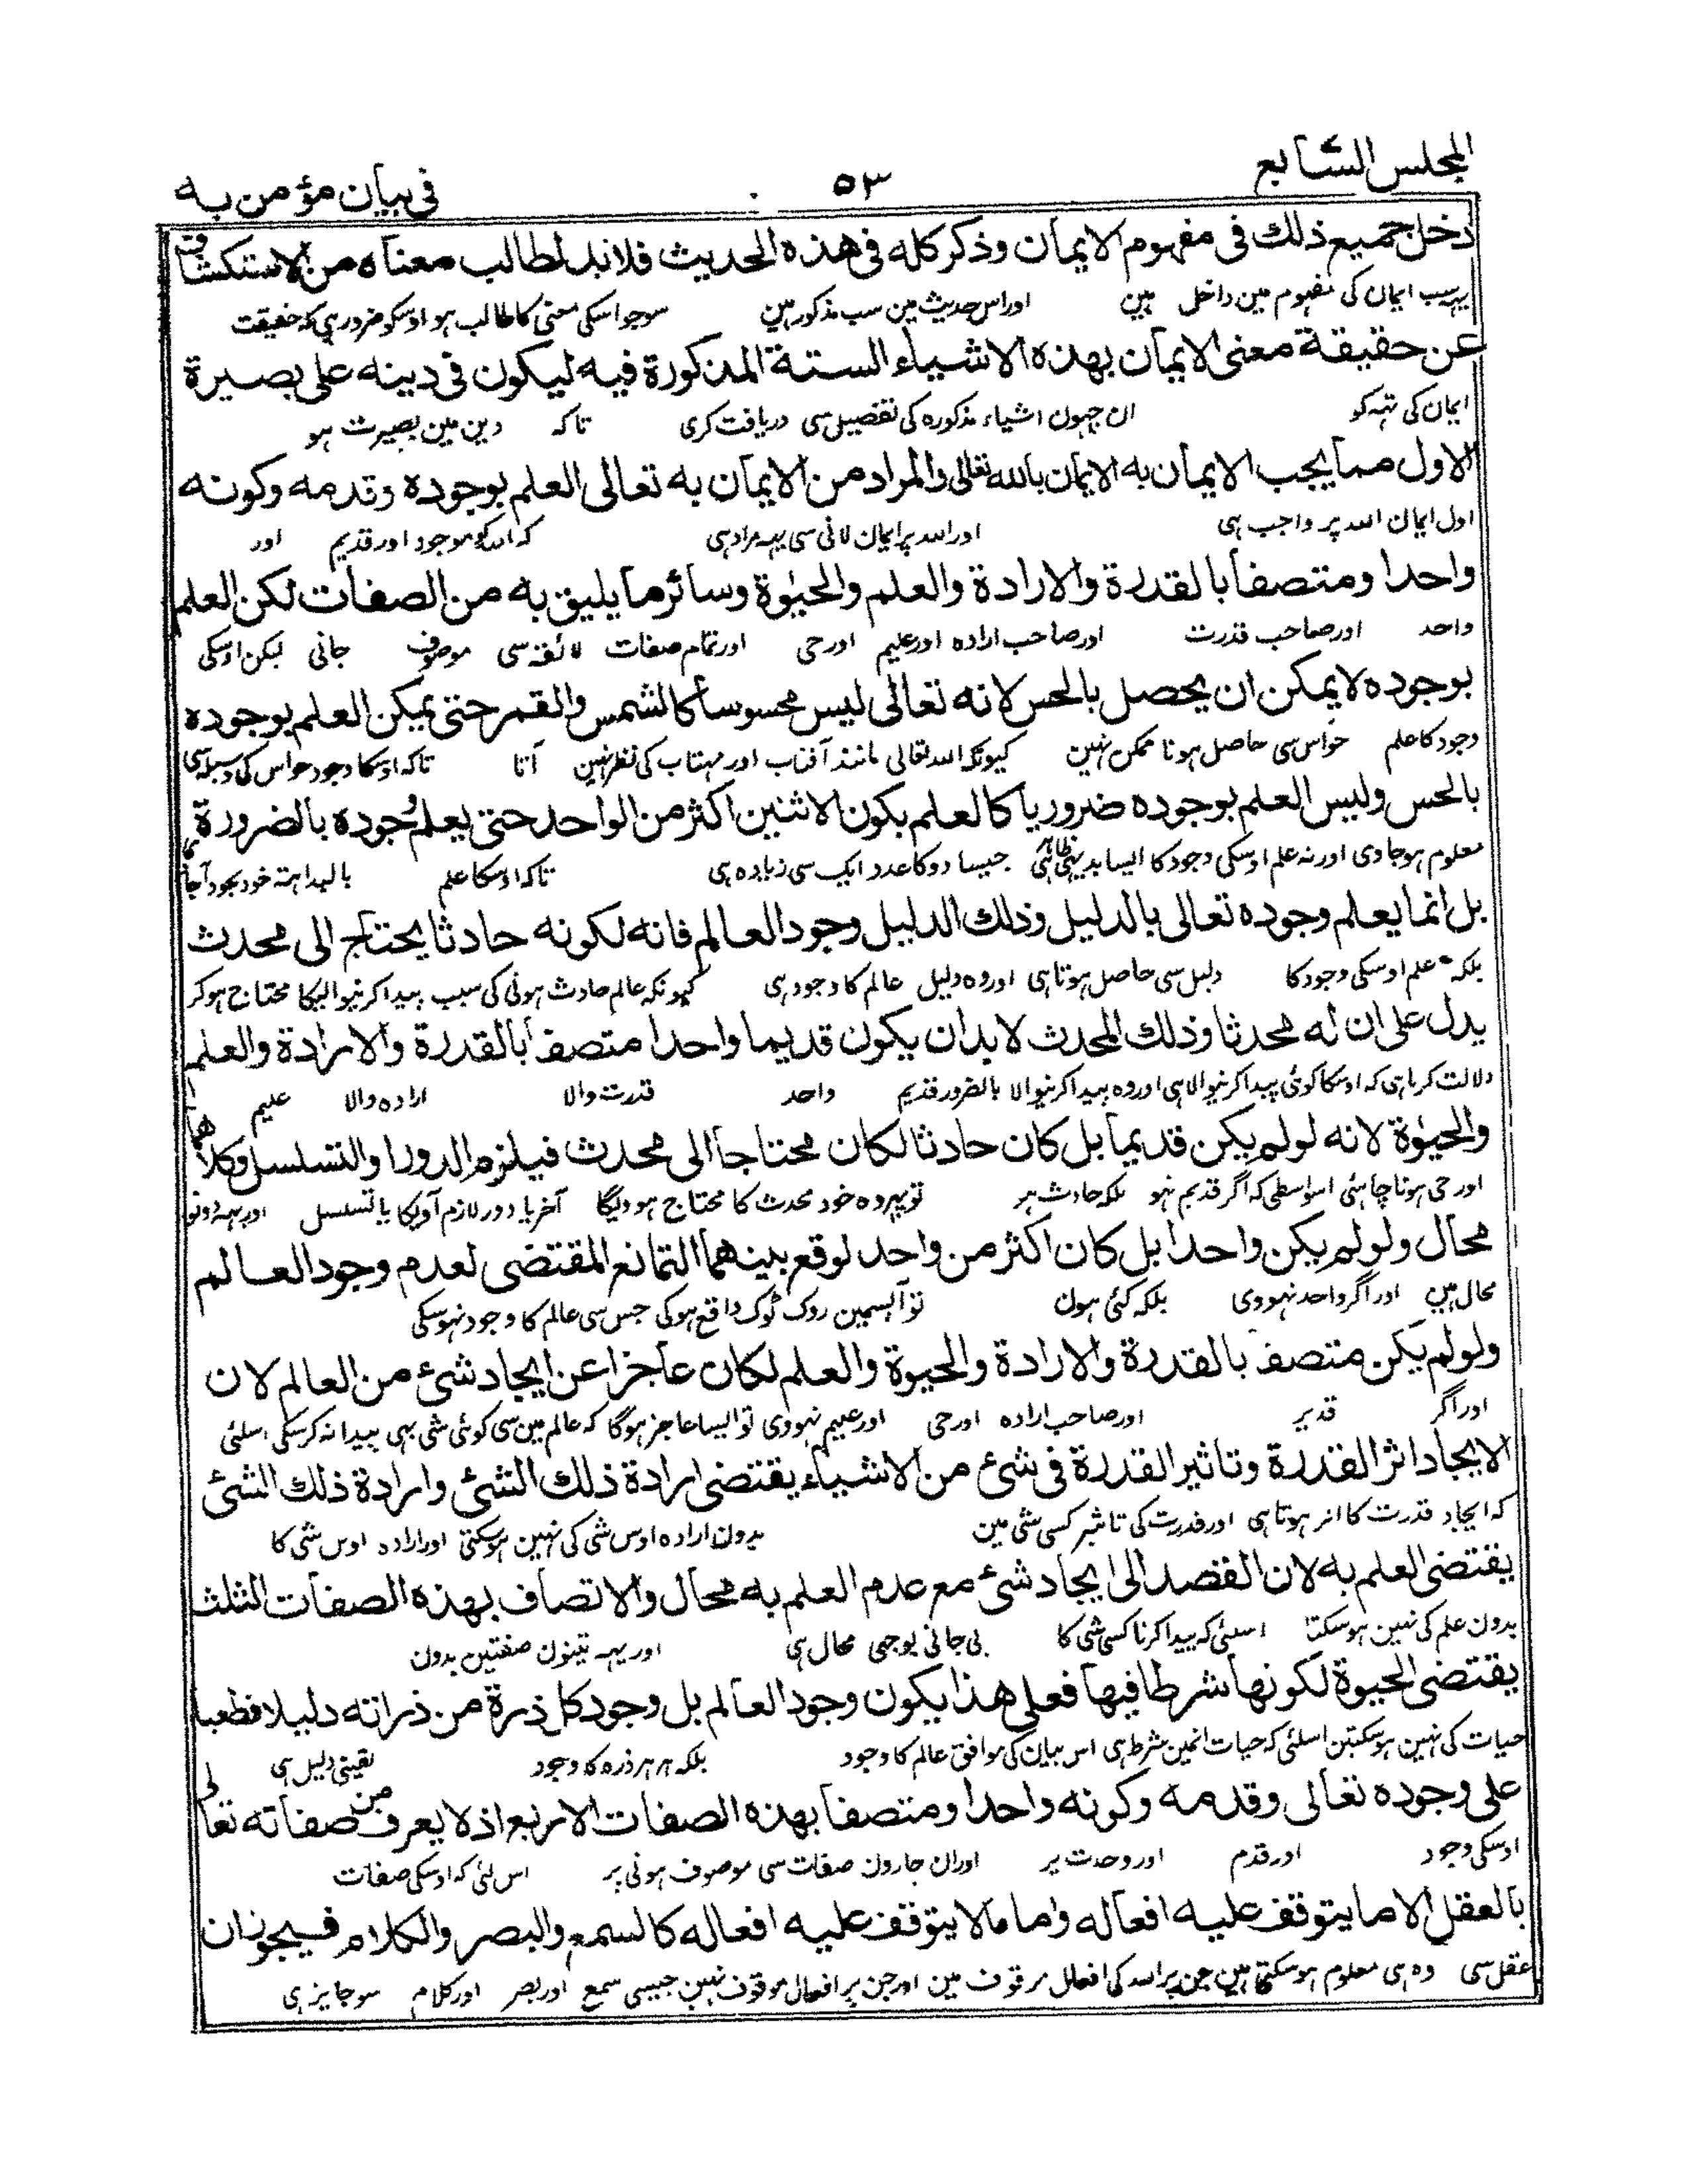 المجلس السابع
٥٣
فی بیان مؤمن به
دخل جمیع ذلك فی مفهوم الایمان وذكر كله فی هذه الحدیث فلا بد لطالب معناه من الاستكشاف
یہہ سب ایمان کی مفہوم مین داخل ہین اور اس حدیث مین سب مذکور ہین سو جو اسکی معنی کا طالب ہو اوسکو ضرور ہی کہ حقیقت
عن حقیقة معنی الایمان بهذه الاشیاء الستة المذكورة فیه لیكون فی دینه علی بصیرة
ایمان کی تہہ کو ان چہون اشیاء مذکورہ کی تفصیل سی دریافت کری تاکہ دین مین بصیرت ہو
الاول مما یجب الایمان به الایمان بالله تعالی والمراد من الایمان به تعالی العلم بوجوده وقدمه وكونه
اول ایمان اللہ پر واجب ہی اور اللہ پر ایمان لانی سی یہہ مراد ہی کہ اللہ کو موجود اور قدیم اور
واحدا ومتصفا بالقدرة والارادة والعلم والحیوة وسائر ما یلیق به من الصفات لكن العلم
واحد اور صاحب قدرت اور صاحب ارادہ اور علیم اور حی اور تمام صفات لائقہ سی موصوف جانی لیکن اوسکی
بوجوده لا یمكن ان یحصل بالحس لانه تعالی لیس محسوسا كالشمس والقمر حتی یمكن العلم بوجوده
وجود کا علم حواس سی حاصل ہونا ممکن نہین کیونکہ اللہ تعالی مانند آفتاب اور مہتاب کی نظر نہین آتا تاکہ اوسکا وجود حواس کی وسیلہ سی
بالحس ولیس العلم بوجوده ضروریا كالعلم بكون الاثنین اكثر من الواحد حتی یعلم وجوده بالضرورة
معلوم ہو جاوی اور نہ علم اوسکی وجود کا ایسا بدیہی جیسا دو کا عدد ایک سی زیادہ ہی تاکہ اوسکا علم بالبداہتہ خود بخود
بل انما یعلم وجوده تعالی بالدلیل وذلك الدلیل وجود العالم فانه لكونه حادثا یحتاج الی محدث
بلکہ علم اوسکی وجود کا دلیل سی حاصل ہوتا ہی اور وہ دلیل عالم کا وجود ہی کیونکہ عالم حادث ہونی کی سبب پیدا کرنیوالیکا محتاج ہو کر
یدل علی ان له محدثا وذلك المحدث لا بد ان یكون قدیما واحدا متصفا بالقدرة والارادة والعلم
دلالت کر رہا ہی کہ اوسکا کوئی پیدا کرنیوالا ہی اور وہ پیدا کرنیوالا بالضرور قدیم واحد قدرت والا ارادہ والا علیم
والحیوة لانه لو لم یكن قدیما بل كان حادثا لكان محتاجا الی محدث فیلزم الدور او التسلسل وكلاهما
اور حی ہونا چاہئی اسواسطی کہ اگر قدیم نہو بلکہ حادث ہو تو پہر وہ خود محدث کا محتاج ہو ویگا آخر یا دور لازم آویگا یا تسلسل اور یہہ دونو
محال ولو لم یكن واحدا بل كان اكثر من واحد لوقع بینهما التمانع المقتضی لعدم وجود العالم
محال ہین اور اگر واحد نہووی بلکہ کئی ہون تو آپسمین روک ٹوک واقع ہو کی جس سی عالم کا وجود نہو سکی
ولو لم یكن متصفا بالقدرة والارادة والحیوة والعلم لكان عاجزا عن ایجاد شئ من العالم لان
اور اگر قدیر اور صاحب ارادہ اور حی اور علیم نہووی تو ایسا عاجز ہو گا کہ عالم مین سی کوئی شی بہی پیدا نہ کر سکی اسلئی
الایجاد اثر القدرة وتاثیر القدرة فی شئ من الاشیاء یقتضی ارادة ذلك الشئ وارادة ذلك الشئ
کہ ایجاد قدرت کا اثر ہوتا ہی اور قدرت کی تاثیر کسی شی مین بدون ارادہ اوس شی کی نہین ہو سکتی اور ارادہ اوس شی کا
یقتضی العلم به لان القصد الی ایجاد شئ مع عدم العلم به محال والاتصاف بهذه الصفات الثلث
بدون علم کی نہین ہو سکتا اسلئی کہ پیدا کرنا کسی شی کا بی جانی بوجہی محال ہی اور یہہ تینون صفتین بدون
یقتضی الحیوة لكونها شرطا فیها فعلی هذا یكون وجود العالم بل وجود كل ذرة من ذراته دلیلا قطعیا
حیات کی نہین ہو سکتین اسلئی کہ حیات انمین شرط ہی اس بیان کی موافق عالم کا وجود بلکہ ہر ہر ذرہ کا وجود یقینی دلیل ہی
علی وجوده تعالی وقدمه وكونه واحدا ومتصفا بهذه الصفات الاربع اذ لا یعرف من صفاته تعالی
اوسکی وجود اور قدم اور وحدت پر اور ان چارون صفات سی موصوف ہونی پر اس لئی کہ اوسکی صفات
بالعقل الا ما یتوقف علیه افعاله واما ما لا یتوقف علیه افعاله كالسمع والبصر والكلام فیجوز ان
عقل سی وہ ہی معلوم ہو سکتی ہین جن پر اللہ کی افعال موقوف ہین اور جن پر افعال موقوف نہین جیسی سمع اور بصر اور کلام سو جایز ہی